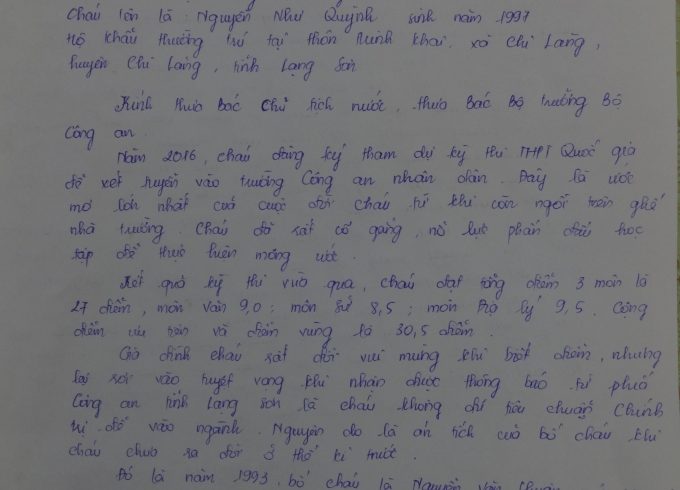 Cháu tên là Nguyễn Như Quỳnh sinh năm 1997
Hộ khẩu thường trú tại thôn Minh Khai, xã Chi Lăng,
huyện Chi Lăng, tỉnh Lạng Sơn
Kính thưa bác Chủ tịch nước, thưa Bác Bộ trưởng Bộ
Công an.
Năm 2016, cháu đăng ký tham dự kỳ thi THPT Quốc gia
để xét tuyển vào trường Công an nhân dân. Đây là ước
mơ lớn nhất của cuộc đời cháu từ khi còn ngồi trên ghế
nhà trường. Cháu đã rất cố gắng, nỗ lực phấn đấu học
tập để thực hiện mong ước.
Kết quả kỳ thi vừa qua, cháu đạt tổng điểm 3 môn là
27 điểm, môn Văn 9,0; môn Sử 8,5; môn Địa lý 9,5. Cộng
điểm ưu tiên và điểm vùng là 30,5 điểm.
Gia đình cháu rất đỗi vui mừng khi biết điểm, nhưng
lại rơi vào tuyệt vọng khi nhận được thông báo từ phía
Công an tỉnh Lạng Sơn là cháu không đủ tiêu chuẩn Chính
trị để vào ngành. Nguyên do là án tích của bố cháu khi
cháu chưa ra đời ở thế kỉ trước.
Đó là năm 1993, bố cháu là Nguyễn Văn